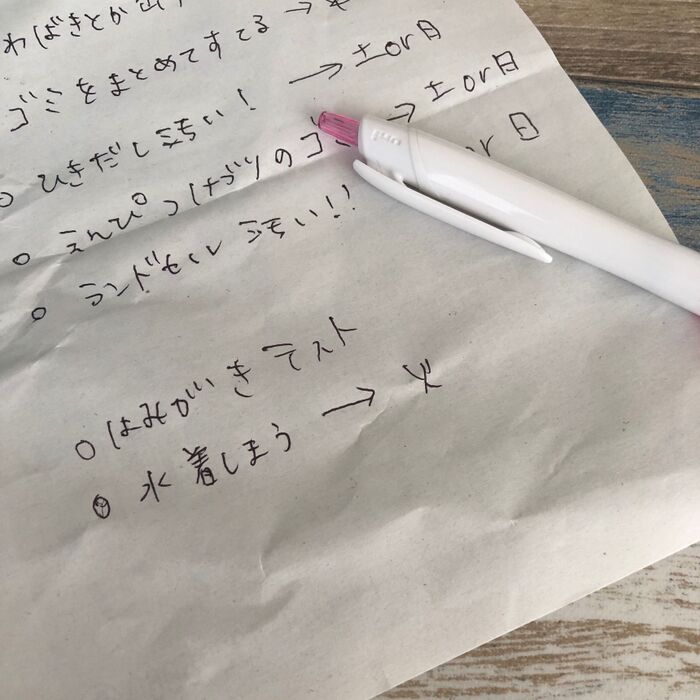 わばきとか
ゴミをまとめてすてる →
○ ひきだし汚い! → 土or日
○ えんぴつけずりのゴ → 土or日
○ ランドセル汚い!! or 日
○ はみがきテスト
○ 水着しまう → 火